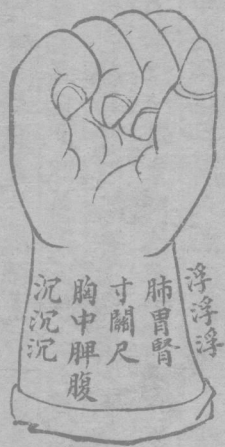 浮浮浮
肺胃腎
寸關尺
胸中脾腹
沉沉沉